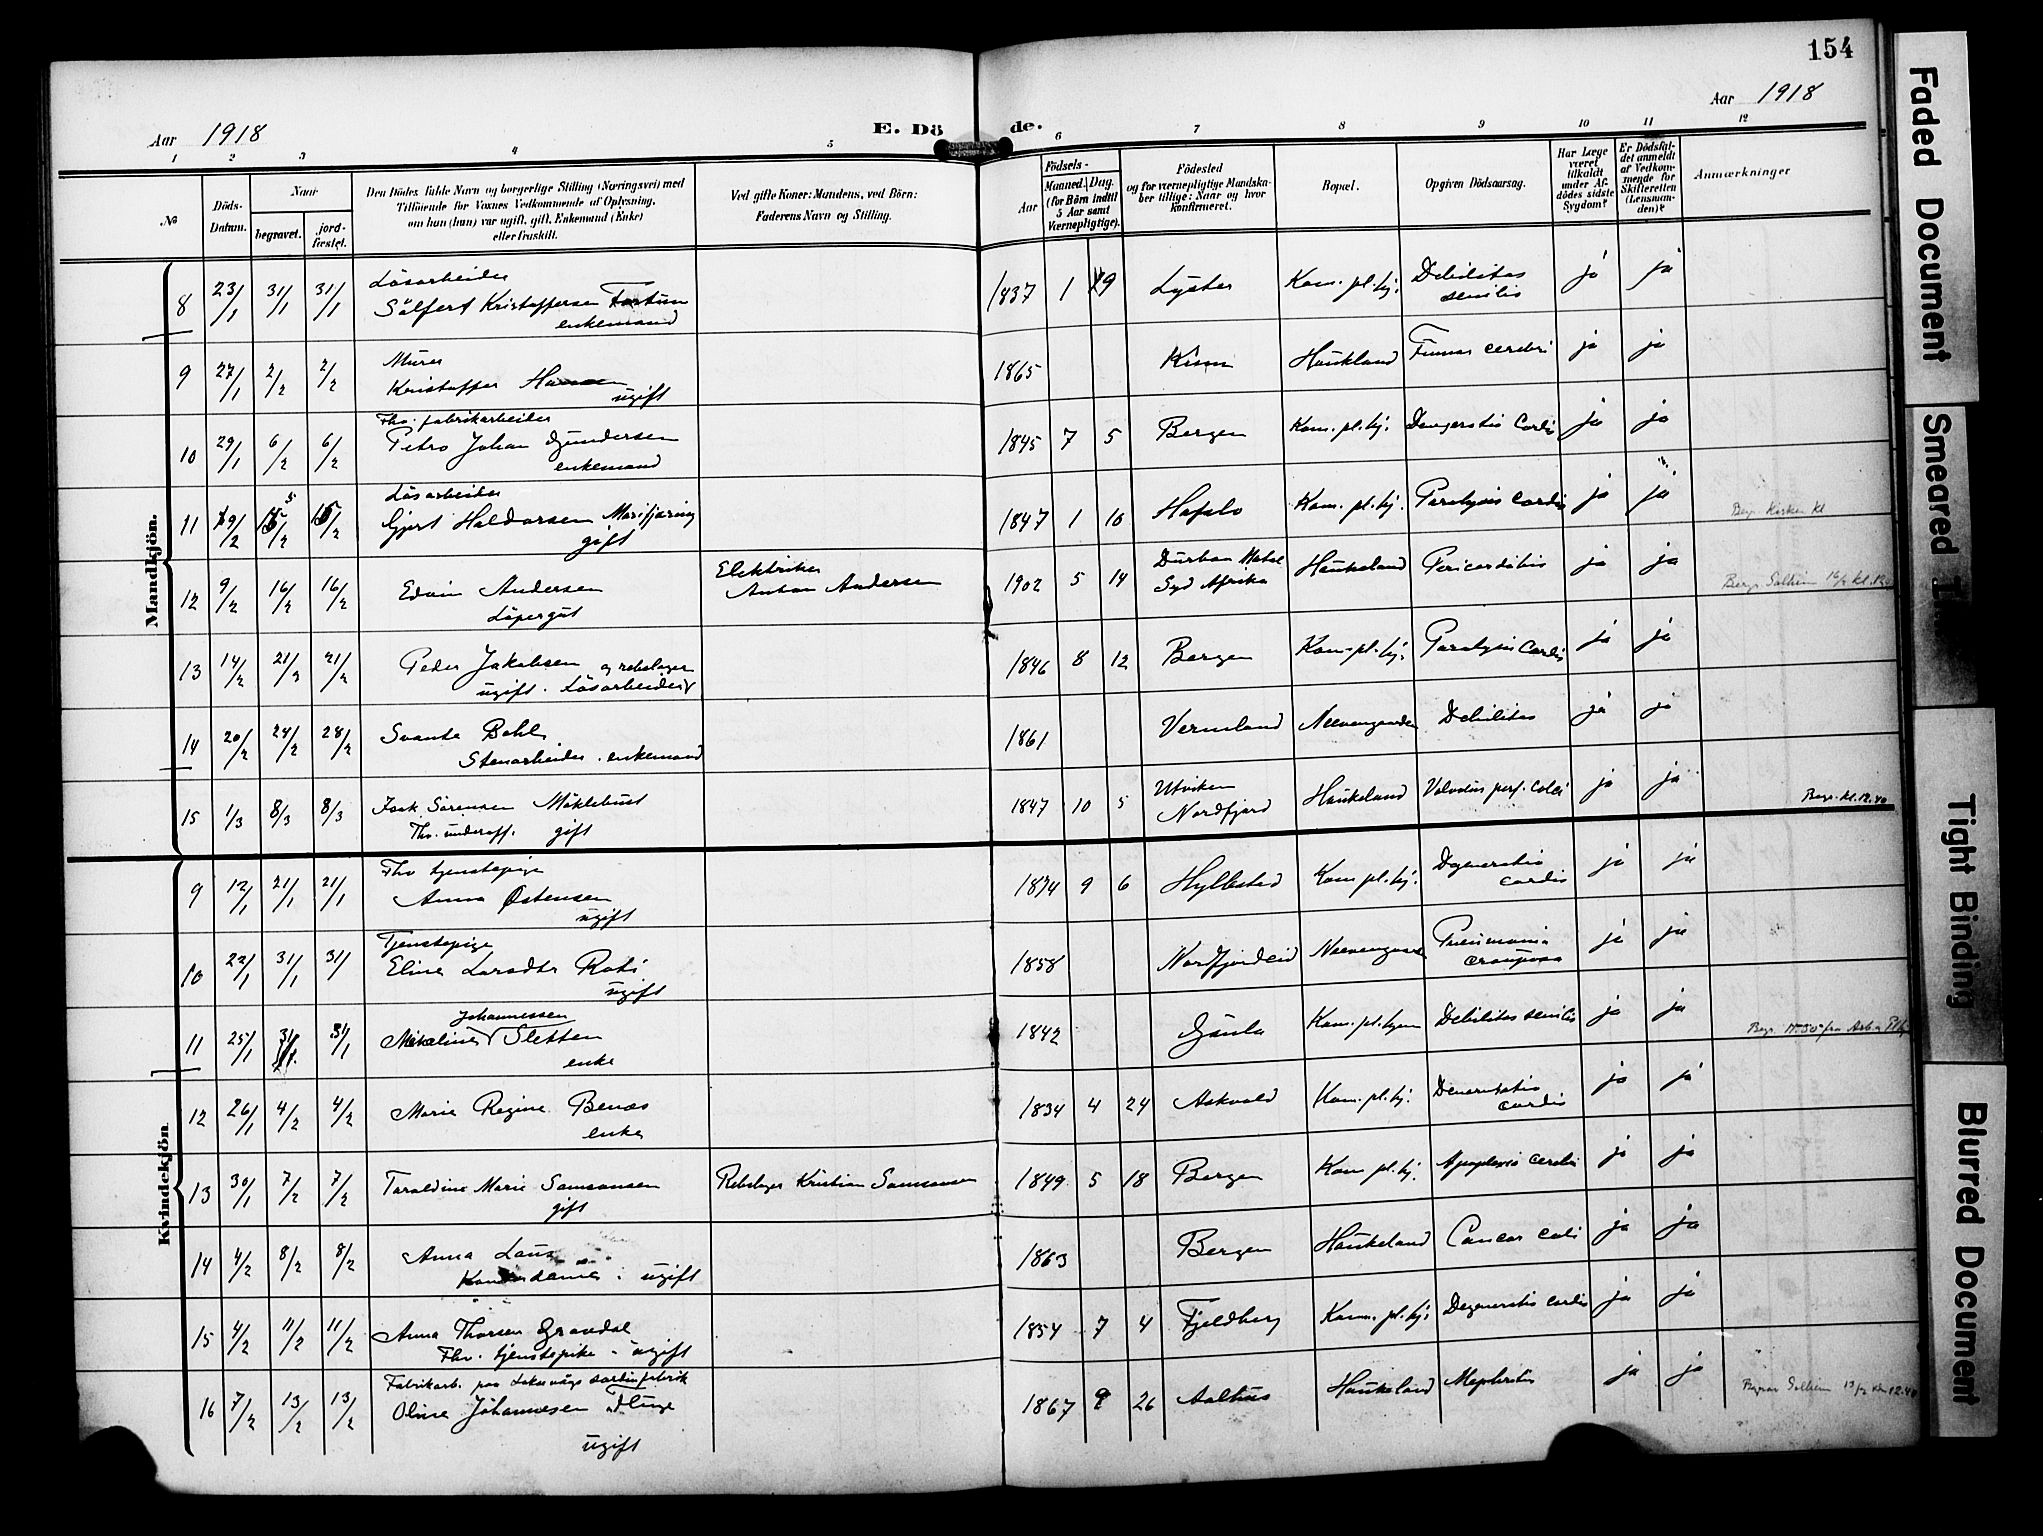 154
Aar 1918
E. Döde.
Aar 1918
1 2 3 4 5 6 7 8 9 10 11 12
No
Döds-Datum.
Naar
begravet.
jord-fæstet.
Den Dödes fulde Navn og borgerlige Stilling (Næringsvei) med
Tilföiende for Voxnes Vedkommende af Oplysning,
om han (hun) var ugift, gift, Enkemand (Enke)
eller fraskilt.
Ved gifte Koner: Mandens, ved Börn:
Faderens Navn og Stilling.
Födsels-
Aar
Maaned. Dag.
(for Börn indtil
5 Aar samt
Værnepligtige).
Födested
og for værnepligtige Mandska-
ber tillige: Naar og hvor
konfirmeret.
Bopæl.
Opgiven Dödsaarsag.
Har Læge
været
tilkaldt
under Af-
dödes sidste
Sygdom?
Er Dödsfal-
det anmeldt
af Vedkom-
mende for
Skifteretten
(Lensman-
den)?
Anmærkninger
Mandkjön.
8 23/1 31/1 31/1 Lösarbeider
Sölfert Kristoffersen Fortun
enkemand
1837 1 19 Lyster Kom. pl. hj. Debilitas senilis ja ja
9 27/1 2/2 2/2 Murer
Kristoffer Hansen
ugift
1865 Kinn Haukland cerebri ja ja
10 29/1 6/2 6/2 Fhv. fabrikarbeider
Petro Johan Gundersen
enkemand
1845 7 5 Bergen Kom. pl. hj. Degeneratio Cordis ja ja
11 9/2 15/2 15/2 Lösarbeider
Gjert Haldorsen Marifjæring
gift
1847 1 10 Hafslo Kom. pl. hj. Paralysis Cordis ja ja
12 9/2 16/2 16/2 Edvin Andersen
Löpergut
Elektriker
Anton Andersen
1902 5 14 Durban Natal
Syd Afrika Haukeland Pericarditis ja ja Begr. Solheim 16/2 kl. 12
13 14/2 21/2 21/2 Peder Jakobsen
ugift. Lösarbeider og rebslager
1846 8 12 Bergen Kom. pl. hj. Paralysis Cordis ja ja
14 20/2 28/2 28/2 Svante Bohl
Stenarbeider. enkemand
1861 Vermland Neevengaarden Debilitas ja ja
15 1/3 8/3 8/3 Isak Sörensen Möklebust
Fhv. underoff. gift
1847 10 5 Utviken
Nordfjord Haukeland Volvulus perf. Coli ja ja Begr. kl. 12.40
Kvindekjön
9 12/1 21/1 21/1 Fhv tjenstepige
Anna Østensen
ugift
1874 9 6 Hyllestad Kom pl. hj. Degeneratio cordis ja ja
10 22/1 31/1 31/ Tjenstepige
Eline Larsdtr
ugift
1858 Nordfjordeid Neevengaarden Pneumonia crouposa ja ja
11 25/1 31/1 31/1 Mikaline Johannessen Sletten
enke
1842 Gaula Kom. pl. hjem Debilitas senilis ja ja
12 26/1 4/2 4/2 Marie Regine Benæs
enke
1834 4 24 Askvold Kom. pl. hj. Deneratatio cordis ja ja
13 30/1 7/2 7/2 Taraldine Marie Samsonsen
gift
Rebslager Kristian Samsonsen
1849 5 18 Bergen Kom pl. hj. Apoplexia cerebri ja ja
14 4/2 8/2 8/2 Anna
ugift
1863 Bergen Haukeland Cancer coli ja ja
15 4/2 11/2 11/2 Anna Thorsen Grovdal
Fhv. tjenstepike. ugift
1854 7 4 Fjeldberg Kom. pl. hj. Degeneratio cordis ja ja
16 7/2 13/2 13/2 Fabrikarb. paa Laksevågs sardinfabrik
Oline Johannesen
ugift
1867 9 26 Aalhus Haukeland Nephritis ja ja Solheim 13/2 12.40
Faded Document
Smeared
Tight Binding
Blurred Document